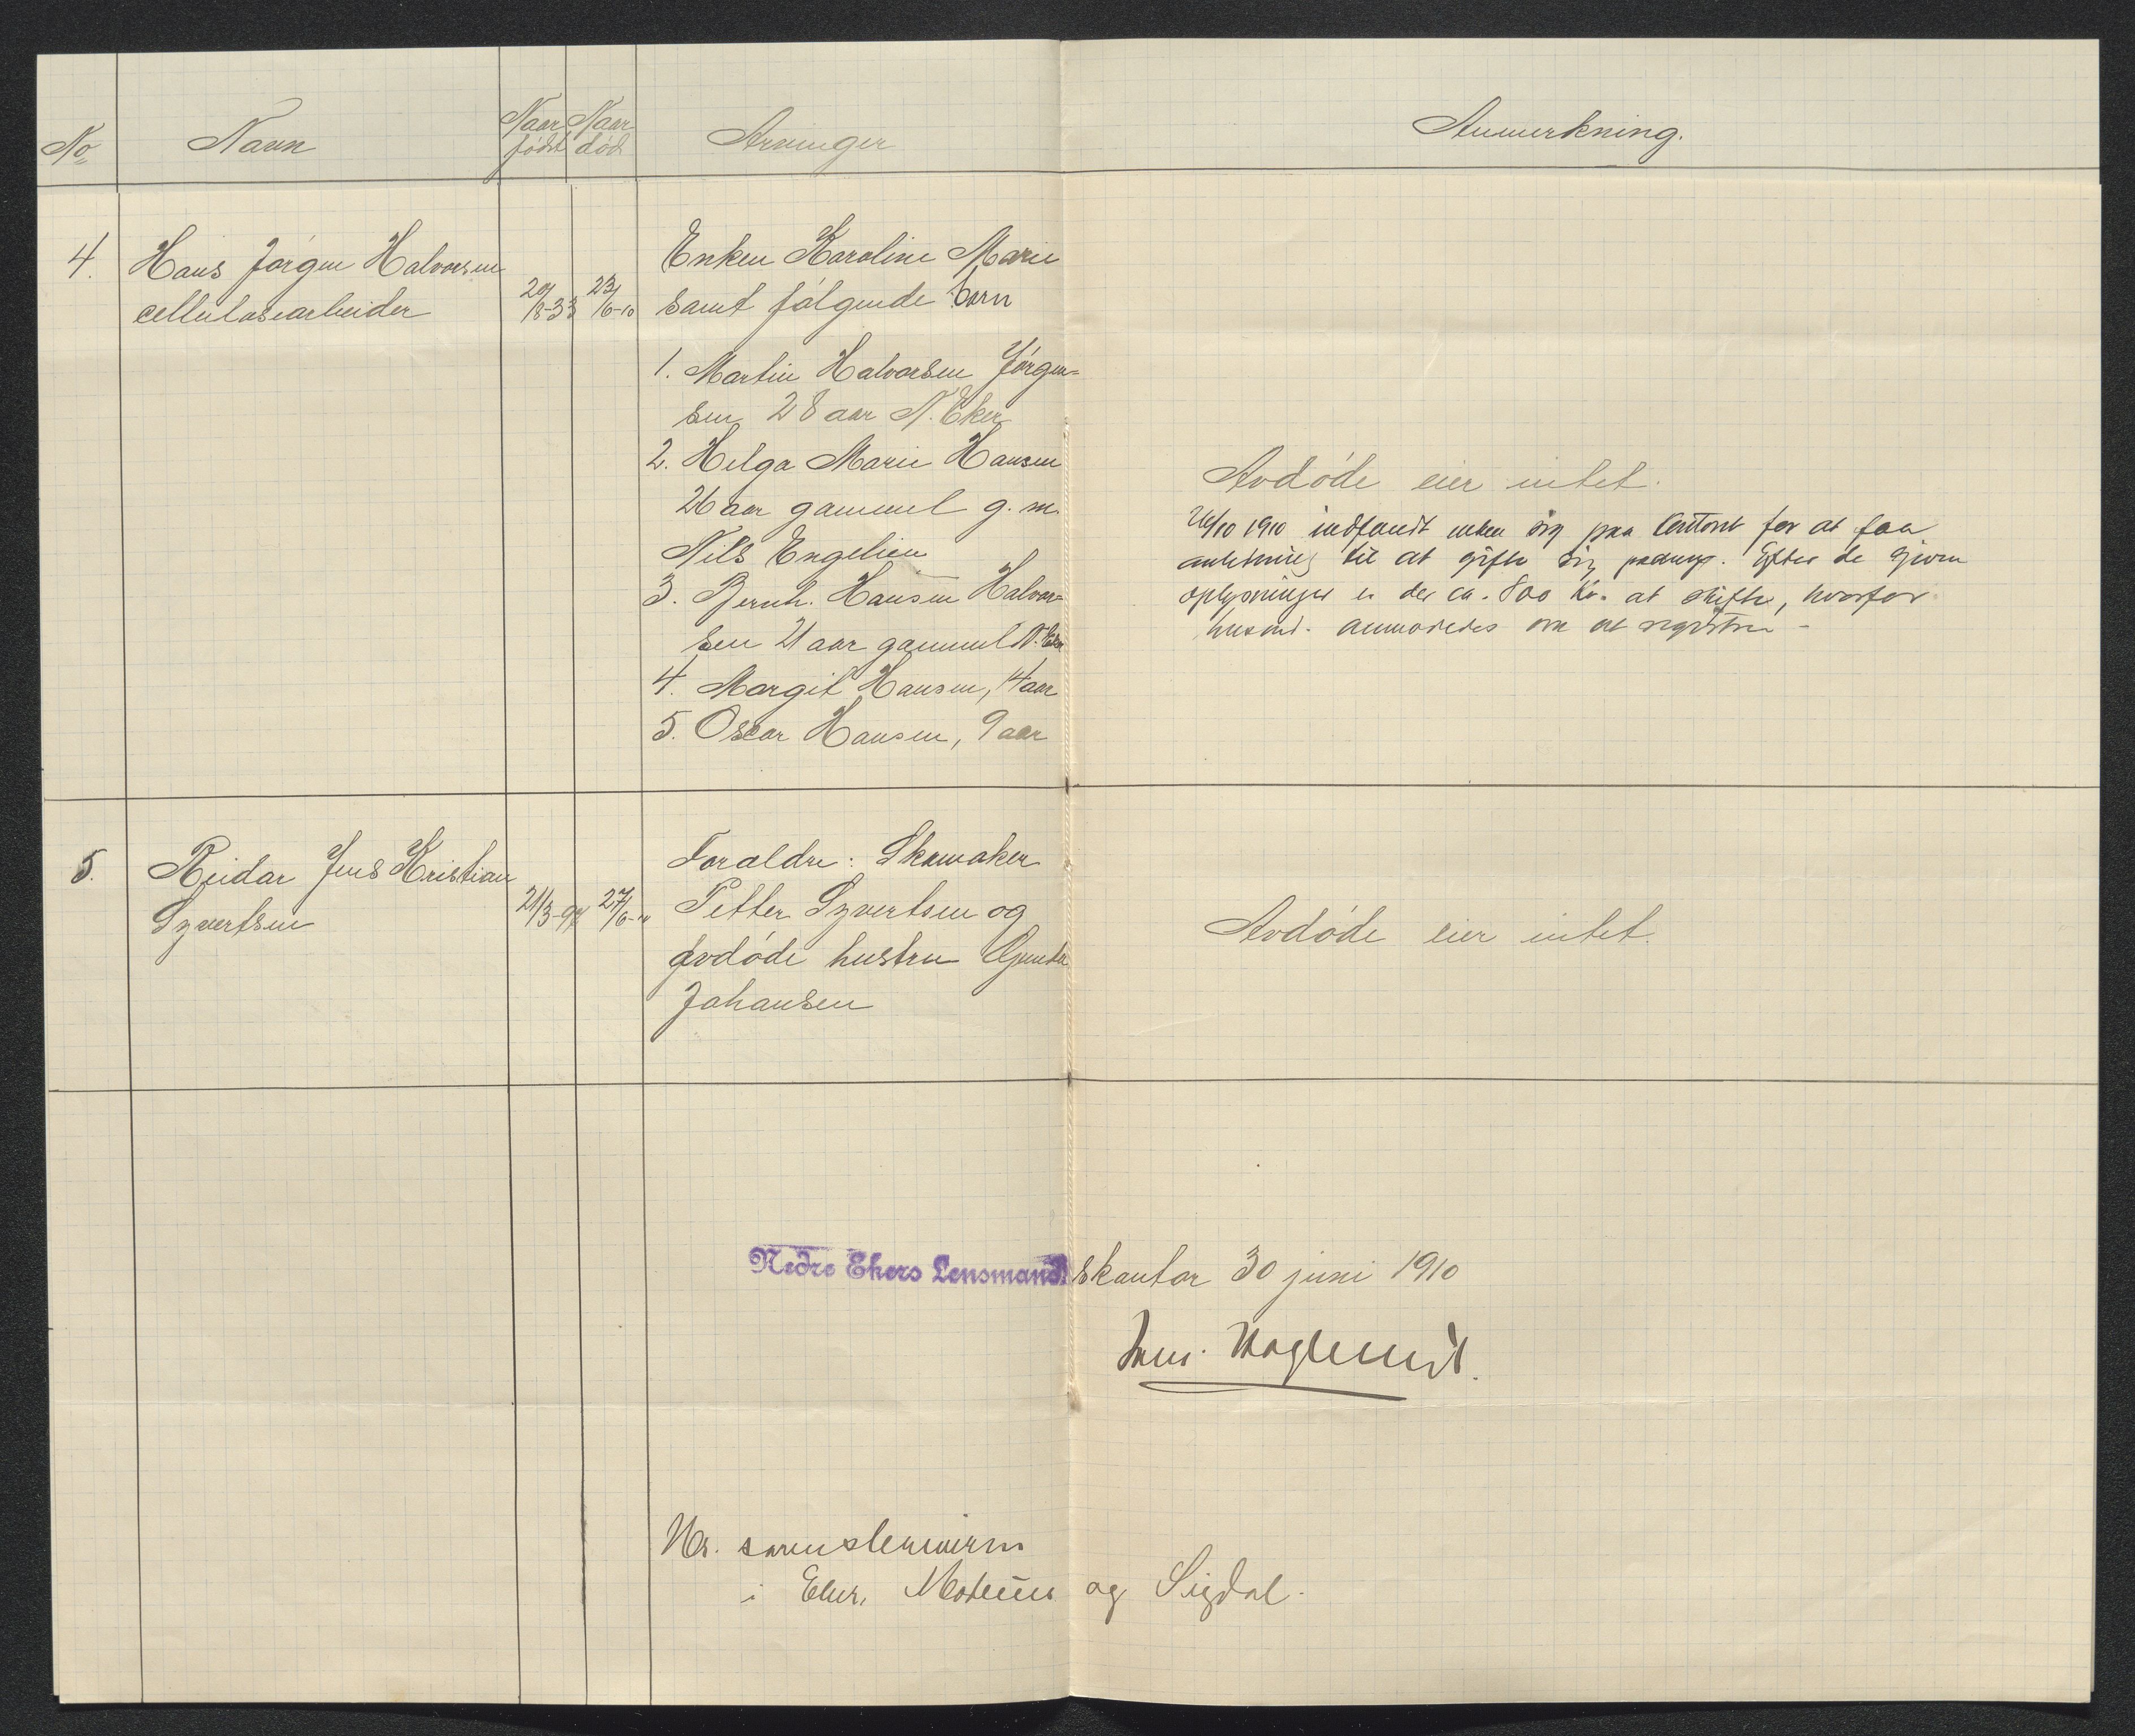 No Navn Naar født Naar død Arvinger Anmerkning.
4. Hans Jørgen Halvorsen
cellulosearbeider
20/8-33 23/6-10
Enken Karoline Marie
samt følgende barn
1. Martin Halvorsen Jørgen=
sen 28 aar N. Eker
2. Helga Marie Hansen
26 aar gammel g. m.
Nils Engelien
3. Bernh. Hansen Halvor=
sen 21 aar gammel N. Eker
4. Margit Hansen, 14 aar
5. Oscar Hansen, 9 aar
Avdøde eier intet.
1910 indfandt enken sig paa kontoret for at faa
anledning til at gifte sig paanyt. Efter de givne
oplysninger er der ca. 800 Kr. at skifte, hvorfor
anmodedes om at registrere -
5. Reidar Jens Kristian
Syvertsen
21/3-94 27/6-10
Forældre: Skomaker
Petter Syvertsen og
avdøde hustru
Johansen
Avdøde eier intet.
Nedre Ekers Lensmands skontor 30 juni 1910
Hr. sorenskriveren
i Eker, Modum og Sigdal.